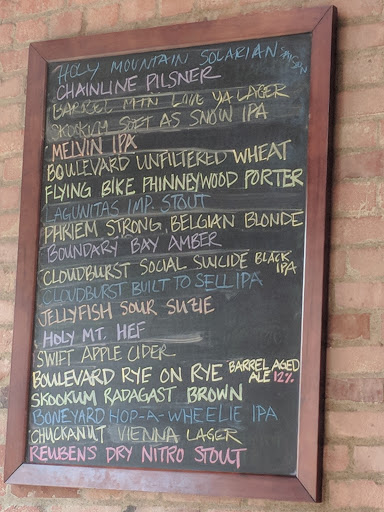 HOLY MOUNTAIN SOLARIAN SAISON
CHAINLINE PILSNER
BARREL MTN LOVE YA LAGER
SKOOKUM SOFT AS SNOW IPA
MELVIN IPA
BOULEVARD UNFILTERED WHEAT
FLYING BIKE PHINNEYWOOD PORTER
LAGUNITAS IMP. STOUT
PFRIEM STRONG BELGIAN BLONDE
BOUNDARY BAY AMBER
CLOUDBURST SOCIAL SUICIDE BLACK IPA
CLOUDBURST BUILT TO SELL IPA
JELLYFISH SOUR SUZIE
HOLY MT. HEF
SWIFT APPLE CIDER
BOULEVARD RYE ON RYE BARREL AGED ALE 12%
SKOOKUM RADAGAST BROWN
BONEYARD HOP-A-WHEELIE IPA
CHUCKANUT VIENNA LAGER
REUBEN'S DRY NITRO STOUT